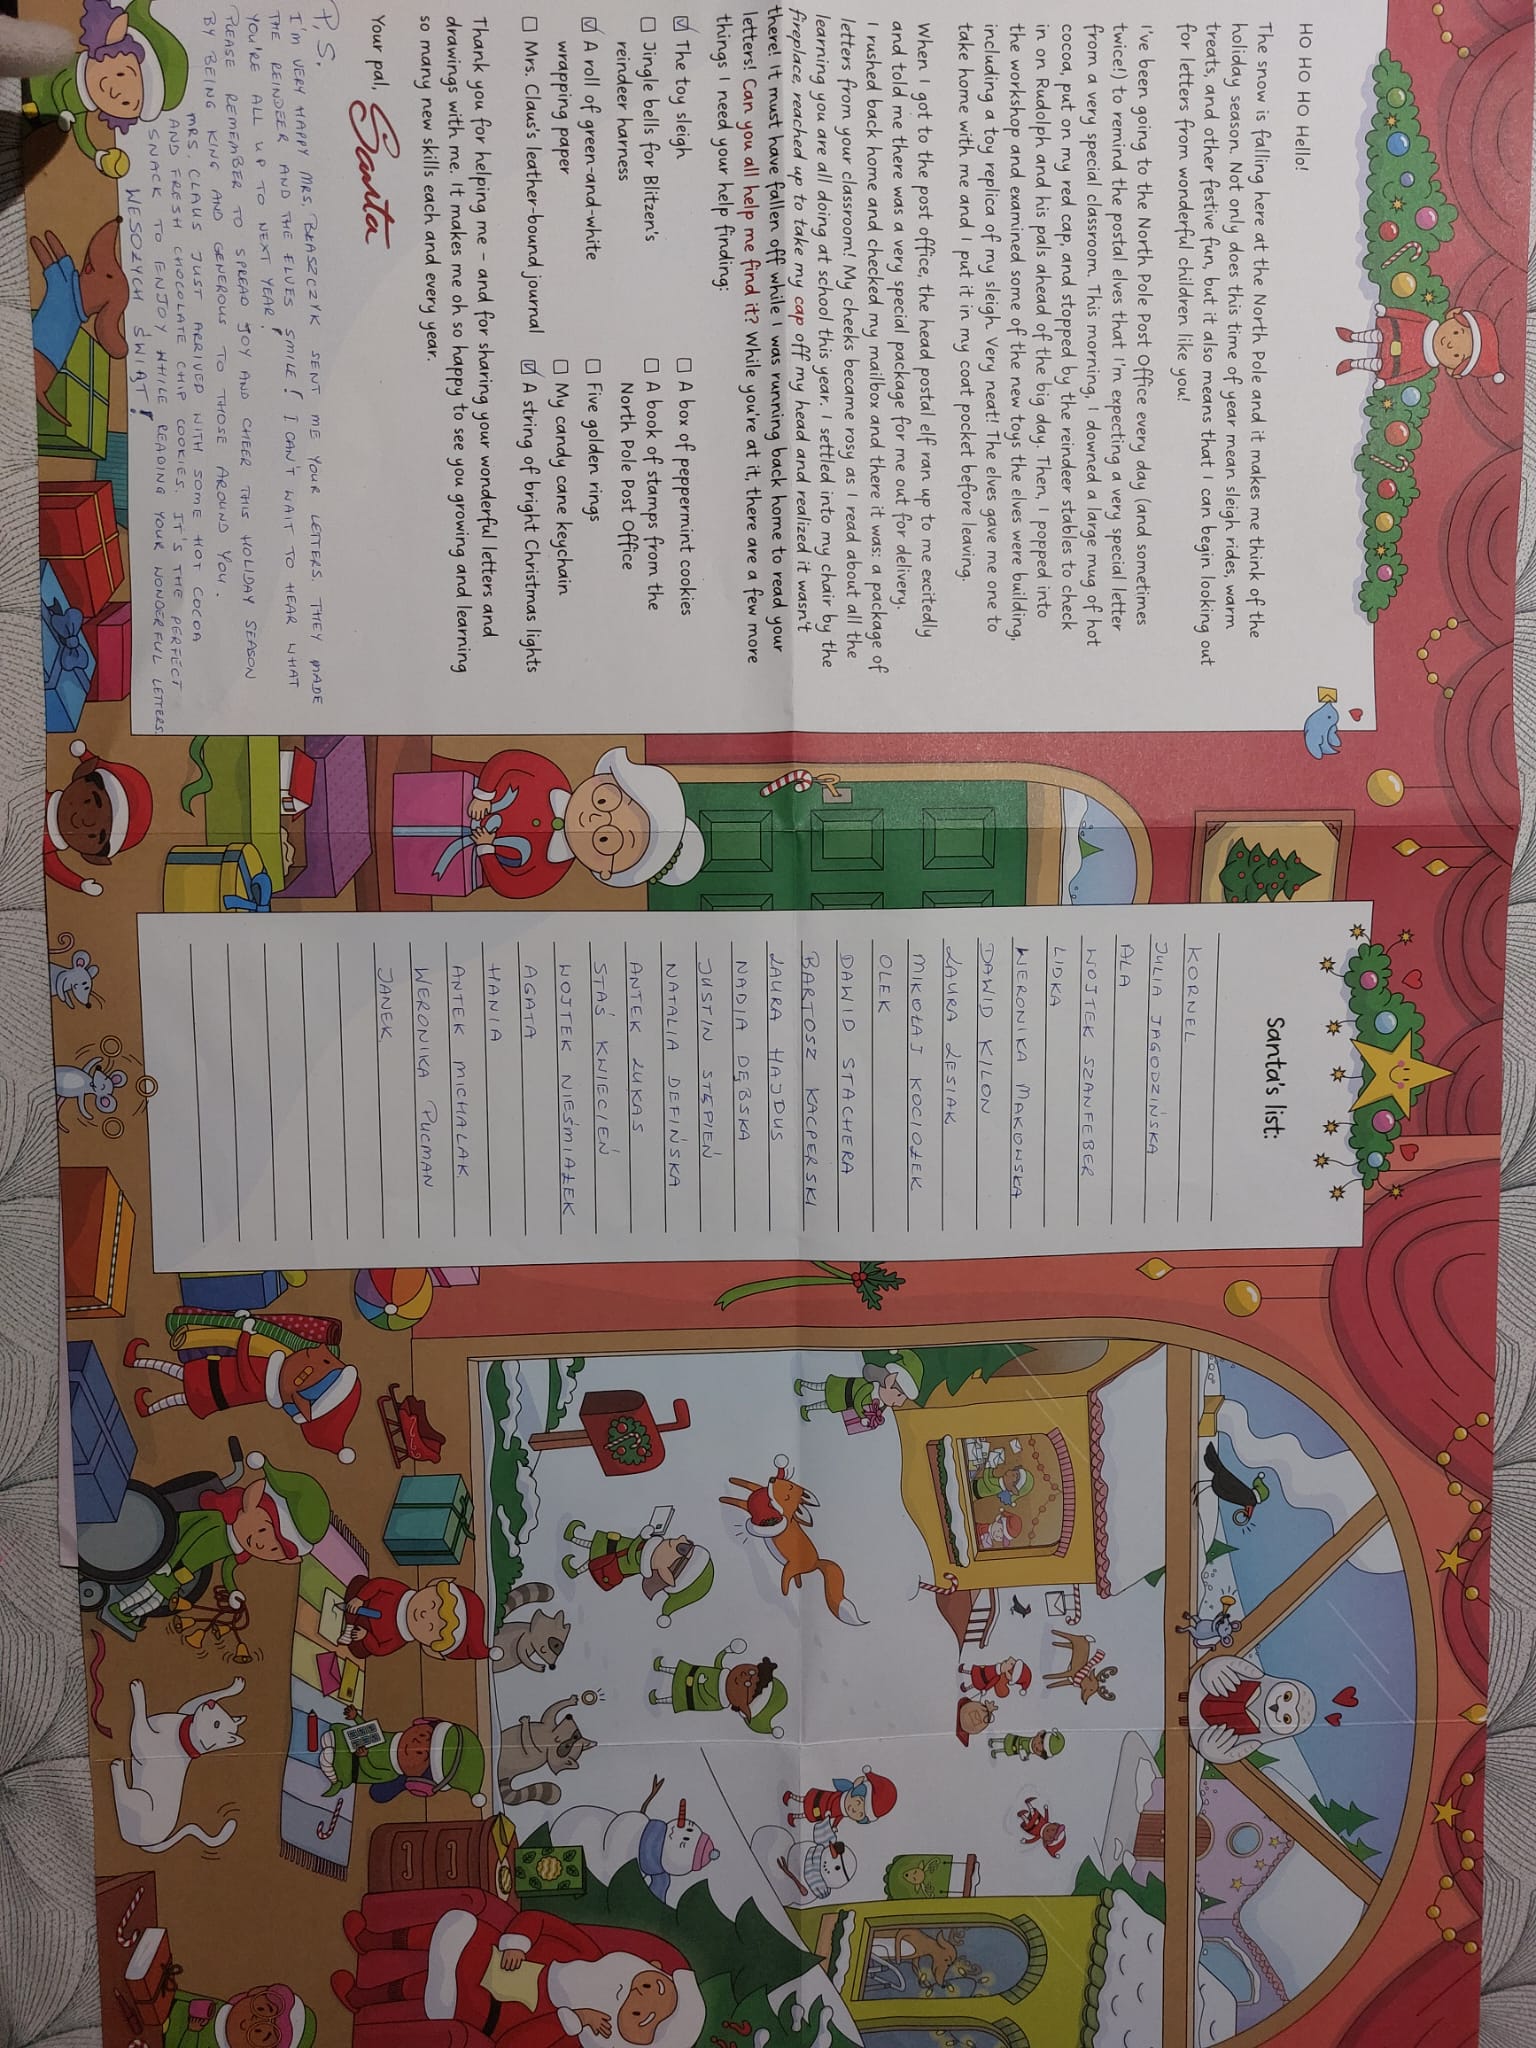 HO HO HO Hello!
The snow is falling here at the North Pole and it makes me think of the
holiday season. Not only does this time of year mean sleigh rides, warm
treats, and other festive fun, but it also means that I can begin looking out
for letters from wonderful children like you!
I've been going to the North Pole Post Office every day (and sometimes
twice!) to remind the postal elves that I'm expecting a very special letter
from a very special classroom. This morning, I downed a large mug of hot
cocoa, put on my red cap, and stopped by the reindeer stables to check
in on Rudolph and his pals ahead of the big day. Then, I popped into
the workshop and examined some of the new toys the elves were building,
including a toy replica of my sleigh. Very neat! The elves gave me one to
take home with me and I put it in my coat pocket before leaving.
When I got to the post office, the head postal elf ran up to me excitedly
and told me there was a very special package for me out for delivery.
I rushed back home and checked my mailbox and there it was: a package of
letters from your classroom! My cheeks became rosy as I read about all the
learning you are all doing at school this year. I settled into my chair by the
fireplace, reached up to take my cap off my head and realized it wasn't
there! It must have fallen off while I was running back home to read your
letters! Can you all help me find it? While you're at it, there are a few more
things I need your help finding:
The toy sleigh
Jingle bells for Blitzen's
reindeer harness
A roll of green-and-white
wrapping paper
Mrs. Claus's leather-bound journal
A box of peppermint cookies
A book of stamps from the
North Pole Post Office
Five golden rings
My candy cane keychain
A string of bright Christmas lights
Thank you for helping me – and for sharing your wonderful letters and
drawings with me. It makes me oh so happy to see you growing and learning
so many new skills each and every year.
Your pal,
Santa
P.S.
I'M VERY HAPPY MRS. BŁASZCZYK SENT ME YOUR LETTERS. THEY MADE
THE REINDEER AND THE ELVES SMILE! I CAN'T WAIT TO HEAR WHAT
YOU'RE ALL UP TO NEXT YEAR!
PLEASE REMEMBER TO SPREAD JOY AND CHEER THIS HOLIDAY SEASON
BY BEING KING AND GENEROUS TO THOSE AROUND YOU.
MRS. CLAUS JUST ARRIVED WITH SOME HOT COCOA
AND FRESH CHOCOLATE CHIP COOKIES. IT'S THE PERFECT
SNACK TO ENJOY WHILE READING YOUR WONDERFUL LETTERS.
WESOŁYCH ŚWIĄT!
Santa's list:
KORNEL
JULIA JAGODZIŃSKA
ALA
WOJTEK SZANFEBER
LIDKA
WERONIKA MAKOWSKA
DAWID KILON
LAURA LESIAK
MIKOŁAJ KOCIOŁEK
OLEK
DAWID STACHERA
BARTOSZ KACPERSKI
LAURA HAJDUS
NADIA DĘBSKA
JUSTIN STĘPIEŃ
NATALIA DEFIŃSKA
ANTEK ŁUKAS
STAŚ KWIECIEŃ
WOJTEK NIEŚMIAŁEK
AGATA
HANIA
ANTEK MICHALAK
WERONIKA PUCMAN
JANEK